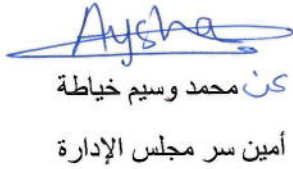 Aysha
عن محمد وسيم خياطة
أمين سر مجلس الإدارة